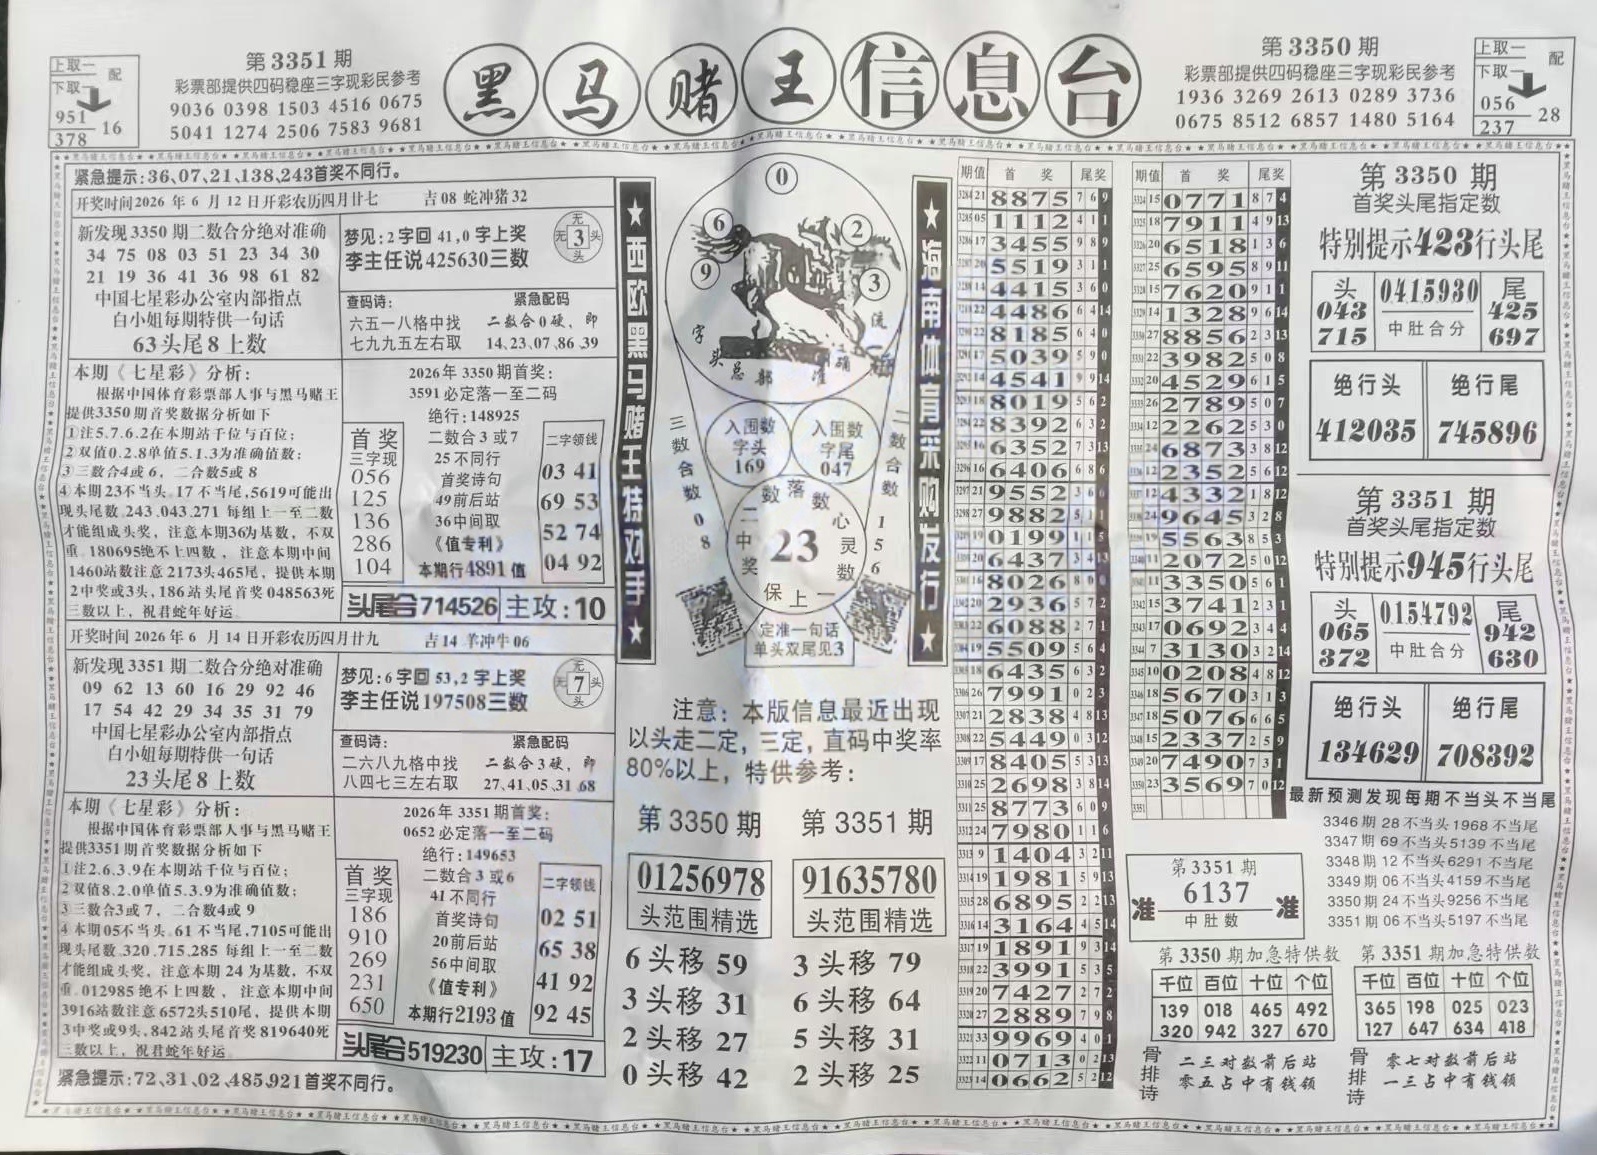 上取一
下取一
配
951
378
16
第3351期
彩票部提供四码稳座三字现彩民参考
9036 0398 1503 4516 0675
5041 1274 2506 7583 9681
黑马赌王信息台
第3350期
彩票部提供四码稳座三字现彩民参考
1936 3269 2613 0289 3736
0675 8512 6857 1480 5164
上取一
下取一
配
056
237
28
紧急提示:36,07,21,138,243首奖不同行。
开奖时间2026年6月12日开彩农历四月廿七 吉08 蛇冲猪32
新发现3350期二数合分绝对准确
34 75 08 03 51 23 34 30
21 19 36 41 36 98 61 82
中国七星彩办公室内部指点
白小姐每期特供一句话
63头尾8上数
梦见:2字回41,0字上奖
李主任说425630三数
无
无3头
头
查码诗:
六五一八格中找
七九九五左右取
紧急配码
二数合0硬,即
14,23,07,86,39
本期《七星彩》分析:
根据中国体育彩票部人事与黑马赌王
提供3350期首奖数据分析如下
①注5.7.6.2在本期站千位与百位;
②双值0.2.8单值5.1.3为准确值数;
③三数合4或6,二合数5或8
④本期23不当头.17不当尾,5619可能出
现头尾数.243.043.271每组上一至二数
才能组成头奖,注意本期36为基数,不双
重.180695绝不上四数,注意本期中间
1460站数注意2173头465尾,提供本期
2中奖或3头,186站头尾首奖048563死
三数以上,祝君蛇年好运。
2026年3350期首奖:
3591必定落一至二码
绝行:148925
二数合3或7
25不同行
首奖诗句
49前后站
36中间取
《值专利》
本期行4891值
首奖
三字现
056
125
136
286
104
二字领线
03 41
69 53
52 74
04 92
头尾合714526
主攻:10
开奖时间2026年6月14日开彩农历四月廿九 吉14 羊冲牛06
新发现3351期二数合分绝对准确
09 62 13 60 16 29 92 46
17 54 42 29 34 35 31 79
中国七星彩办公室内部指点
白小姐每期特供一句话
23头尾8上数
梦见:6字回53,2字上奖
李主任说197508三数
无
无7头
头
查码诗:
二六八九格中找
八四七三左右取
紧急配码
二数合3硬,即
27,41,05,31,68
本期《七星彩》分析:
根据中国体育彩票部人事与黑马赌王
提供3351期首奖数据分析如下
①注2.6.3.9在本期站千位与百位;
②双值8.2.0单值5.3.9为准确值数;
③三数合3或7,二合数4或9
④本期05不当头.61不当尾,7105可能出
现头尾数.320.715.285每组上一至二数
才能组成头奖,注意本期24为基数,不双
重.012985绝不上四数,注意本期中间
3916站数注意6572头510尾,提供本期
3中奖或9头,842站头尾首奖819640死
三数以上,祝君蛇年好运。
2026年3351期首奖:
0652必定落一至二码
绝行:149653
二数合3或6
41不同行
首奖诗句
20前后站
56中间取
《值专利》
本期行2193值
首奖
三字现
186
910
269
231
650
二字领线
02 51
65 38
41 92
92 45
头尾合519230
主攻:17
紧急提示:72,31,02,485,921首奖不同行。
★西欧黑马赌王特对手★
0
6
2
9
3
字头总部准确
入围数
字头
169
入围数
字尾
047
三数合数08
二数合数156
数落数
二中奖
23
心灵数
保上一
定准一句话
单头双尾见3
★海南体育采购发行★
注意:本版信息最近出现
以头走二定,三定,直码中奖率
80%以上,特供参考:
第3350期
01256978
头范围精选
6头移59
3头移31
2头移27
0头移42
第3351期
91635780
头范围精选
3头移79
6头移64
5头移31
2头移25
期值 首奖 尾奖
3284 21 8875 7 6 9
3285 05 1112 4 1 1
3286 17 3455 9 8 9
3287 20 5519 3 1 1
3288 14 4415 3 6 0
4486 6 4 14
8185 6 4 0
5039 5 9 0
4541 9 9 14
8019 5 6 2
8392 6 3 2
6352 7 3 13
3296 16 6406 6 8 6
3297 21 9552 3 6
3298 27 9882 5 1
0199 1 1
6437 3 4
8026 8 0
2936 5 7 2
6088 2 7 1
5509 5 6 4
6435 6 3 2
3306 26 7991 0 2 3
3307 21 2838 4 8 13
3308 22 5449 0 3 12
3309 17 8405 5 3 13
3310 25 2698 3 8 14
3311 25 8773 6 0 9
3312 24 7980 1 1 6
3313 9 1404 3 2 11
3314 19 1981 5 9 13
3315 28 6895 2 2 13
3316 14 3164 4 5 14
3317 19 1891 9 3 14
3318 22 3991 5 3 5
3319 20 7427 2 7 2
3320 27 2889 7 9 8
3321 33 9969 4 0 1
3322 11 0713 0 2 13
3323 14 0662 5 2 12
期值 首奖 尾奖
3324 15 0771 8 7 4
3325 18 7911 4 9 13
3326 20 6518 1 3 6
3327 25 6595 8 9 11
3328 15 7620 9 1 1
3329 14 1328 9 6 14
3330 27 8856 2 3 13
3331 22 3982 5 0 8
3332 20 4529 6 1 5
3333 26 2789 5 0 7
3334 12 2262 5 3 0
3335 24 6873 3 8 12
3336 12 2352 5 6 12
3337 12 4332 1 8 12
3338 24 9645 3 2 8
3339 19 5563 8 5 3
3340 11 2072 5 0 12
3341 11 3350 5 6 1
3342 15 3741 2 3 1
3343 17 0692 3 4 4
3344 7 3130 3 2 14
3345 10 0208 4 8 12
3346 18 5670 3 1 3
3347 18 5076 6 6 5
3348 15 2337 2 5 9
3349 20 7490 7 3 1
3350 23 3569 7 0 12
3351
第3351期
6137
中肚数
准
准
第3350期
首奖头尾指定数
特别提示423行头尾
头
043
715
0415930
中肚合分
尾
425
697
绝行头
412035
绝行尾
745896
第3351期
首奖头尾指定数
特别提示945行头尾
头
065
372
0154792
中肚合分
尾
942
630
绝行头
134629
绝行尾
708392
最新预测发现每期不当头不当尾
3346期28不当头1968不当尾
3347期69不当头5139不当尾
3348期12不当头6291不当尾
3349期06不当头4159不当尾
3350期24不当头9256不当尾
3351期06不当头5197不当尾
第3350期加急特供数
千位 百位 十位 个位
139 018 465 492
320 942 327 670
骨排诗
二三对数前后站
零五占中有钱领
第3351期加急特供数
千位 百位 十位 个位
365 198 025 023
127 647 634 418
骨排诗
零七对数前后站
一三占中有钱领